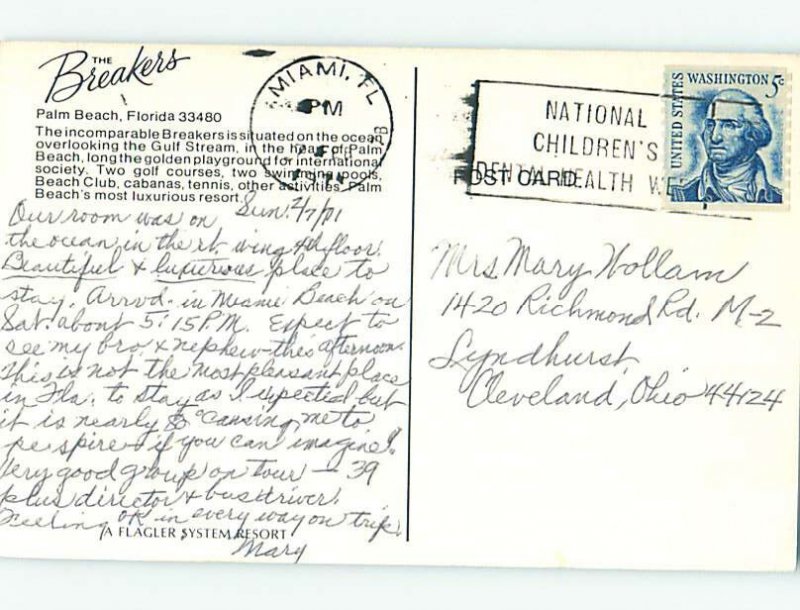 THE
Breakers
Palm Beach, Florida 33480
The incomparable Breakers is situated on the ocean
overlooking the Gulf Stream, in the heart of Palm
Beach, long the golden playground for international
society. Two golf courses, two swimming pools,
Beach Club, cabanas, tennis, other activities. Palm
Beach's most luxurious resort.
MIAMI, FL
PM
Sun. 2/7/
Our room was on
the ocean in the rt. wing 4th floor.
Beautiful & luxurious place to
stay. Arrvd. in Miami Beach on
Sat. about 5:15 P.M. Expect to
see my bro. & nephew this afternoon.
This is not the most pleasant place
in Fla. to stay as I expected but
it is nearly 80° causing me to
pe spire - if you can imagine!
Very good group on tour - 39
plus director & bus driver.
Feeling OK in every way on trip.
Mary
A FLAGLER SYSTEM RESORT
NATIONAL
CHILDREN'S
DENTAL HEALTH WE
POST CARD
UNITED STATES
WASHINGTON 5c
Mrs Mary Hollam
1420 Richmond Rd. M-2
Lyndhurst
Cleveland, Ohio 44124